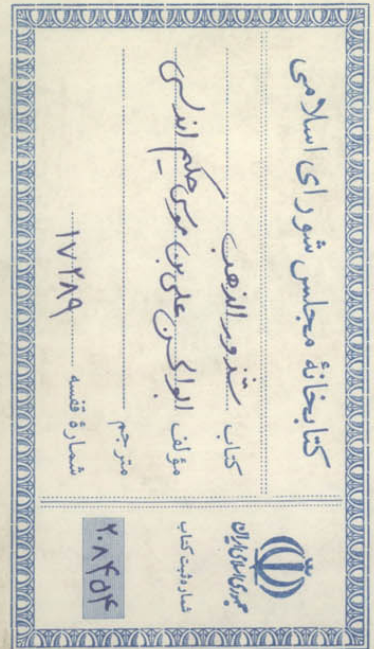 کتابخانهٔ مجلس شورای اسلامی
کتاب شذور الذهب
مؤلف ابوالحسن علی بن موسی حکیم اندلسی
مترجم
شمارهٔ قفسه ۱۷۲۸۹
جمهوری اسلامی ایران
شماره ثبت کتاب
۲۰۸۴۵۴